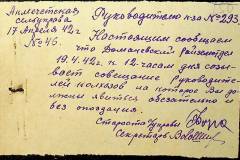 Акмечетская
сельуправа
17 Апреля 42 г
№ 46.
Руководителю к-за № 293
Настоящим сообщаем
что Домачевский
19.4.42 г. к 12 часам дня созы-
вает совещание Руководите-
лей колхозов на которое Вы до-
лжны явится обязательно и
без опоздания.
Староста управы
Секретарь